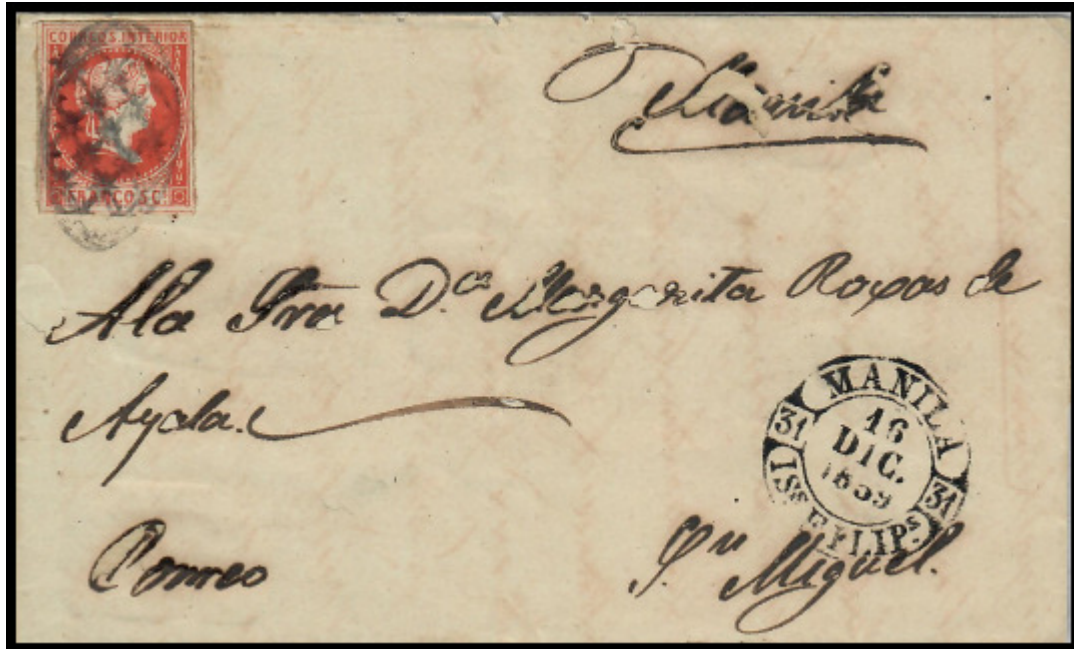 CORREOS INTERIOR
FRANCO 5 Cs
Manila
A la Sra Da Margarita Roxas de
Ayala.
MANILA
31 16 DIC. 1859 31
ISs FILIPs
Correo
Sn Miguel.